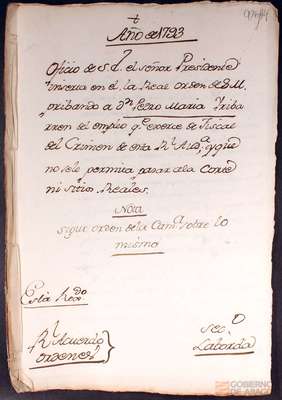 Año de 1793
Oficio de S.E. el señor Presidente
inserta en el la Real orden de S.M.
pribando a Dn. Pedro Maria Iriba
rren del empleo q.e exerce de Fiscal
del Crimen de esta Rl. Aud.a, y que
no se le permita pasar a la Corte
ni sitios Reales.
Nota
sigue orden de la Cam.a sobre lo
mismo
Está Reg.do
Rl. Acuerdo
ordenes
sec.o
Laborda
GOBIERNO
DE ARAGON